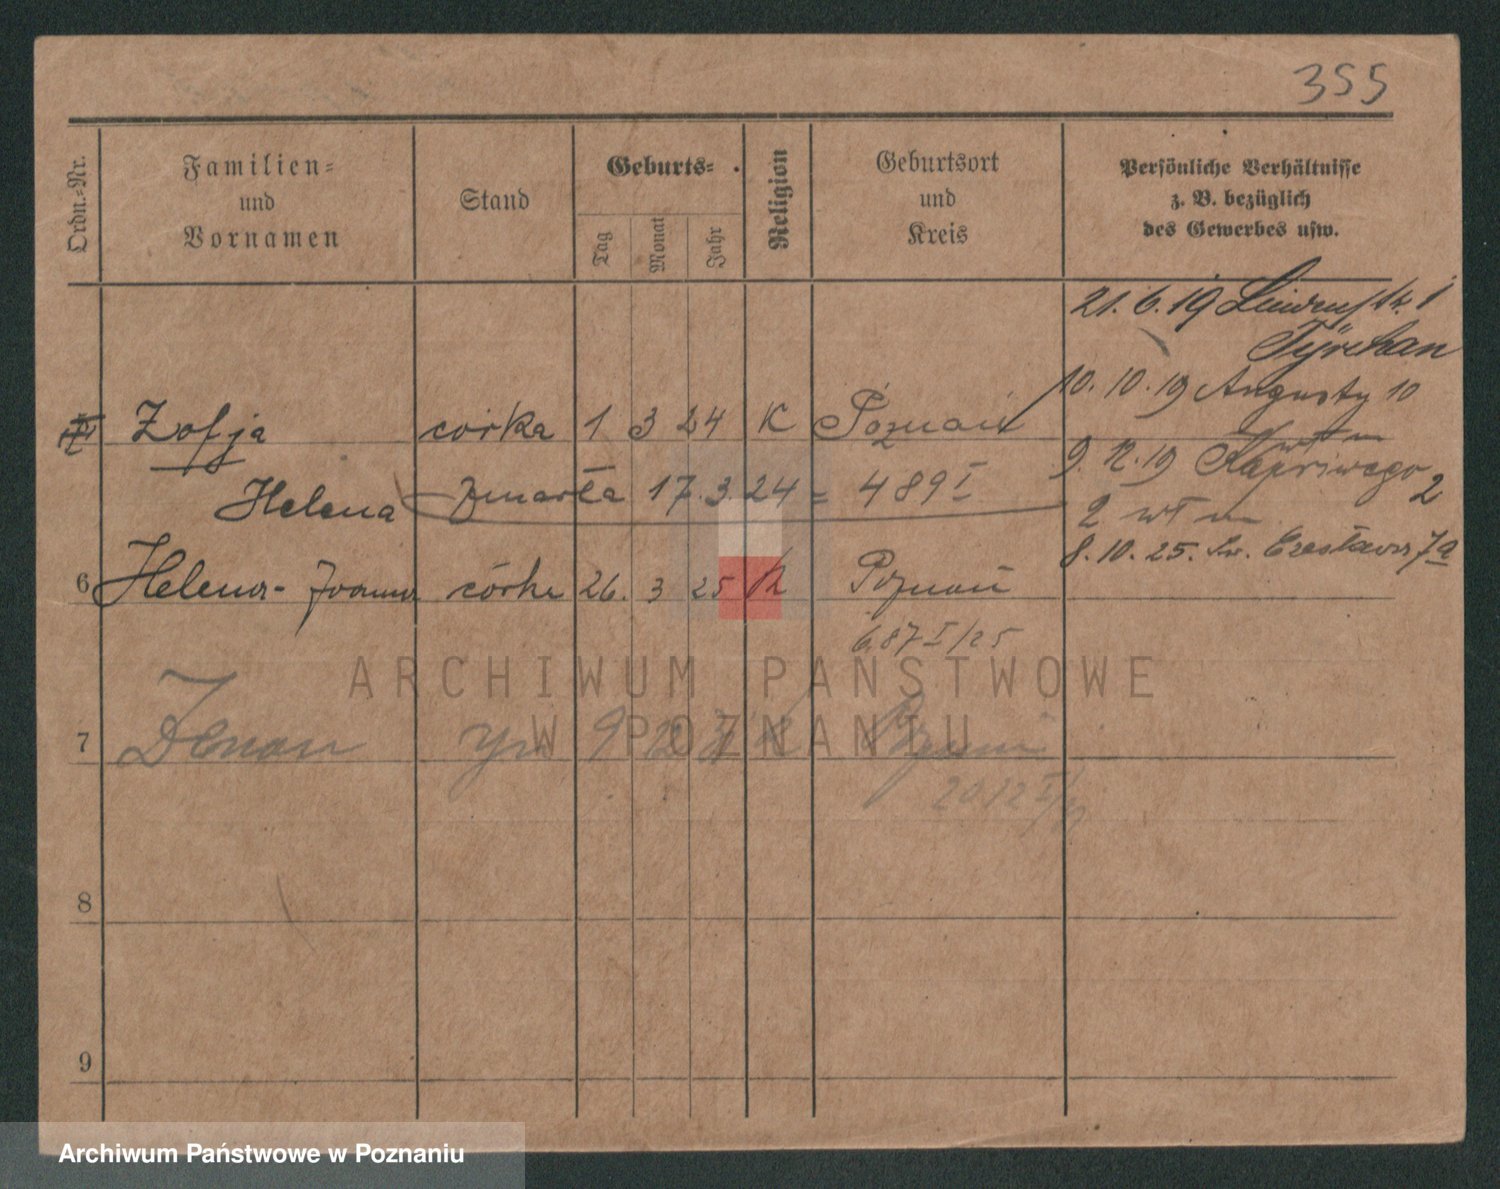 355
Ordn.=Nr.
Familien=
und
Vornamen
Stand
Geburts=
Tag
Monat
Jahr
Religion
Geburtsort
und
Kreis
Persönliche Verhältnisse
z. B. bezüglich
des Gewerbes usw.
21. 6. 19
10. 10. 19 Augusty 10
Zofja córka 1 3 24 K Poznań
9. 12. 19 2
Helena zmarła 17. 3. 24 = 489 I
2
8. 10. 25. Św. Czesława 7a
6 Helena - Joanna córka 26. 3 25 K Poznań
687 I/25
ARCHIWUM PAŃSTWOWE
W POZNANIU
7 Zenon syn 9 12 K Poznań
8
9
Archiwum Państwowe w Poznaniu